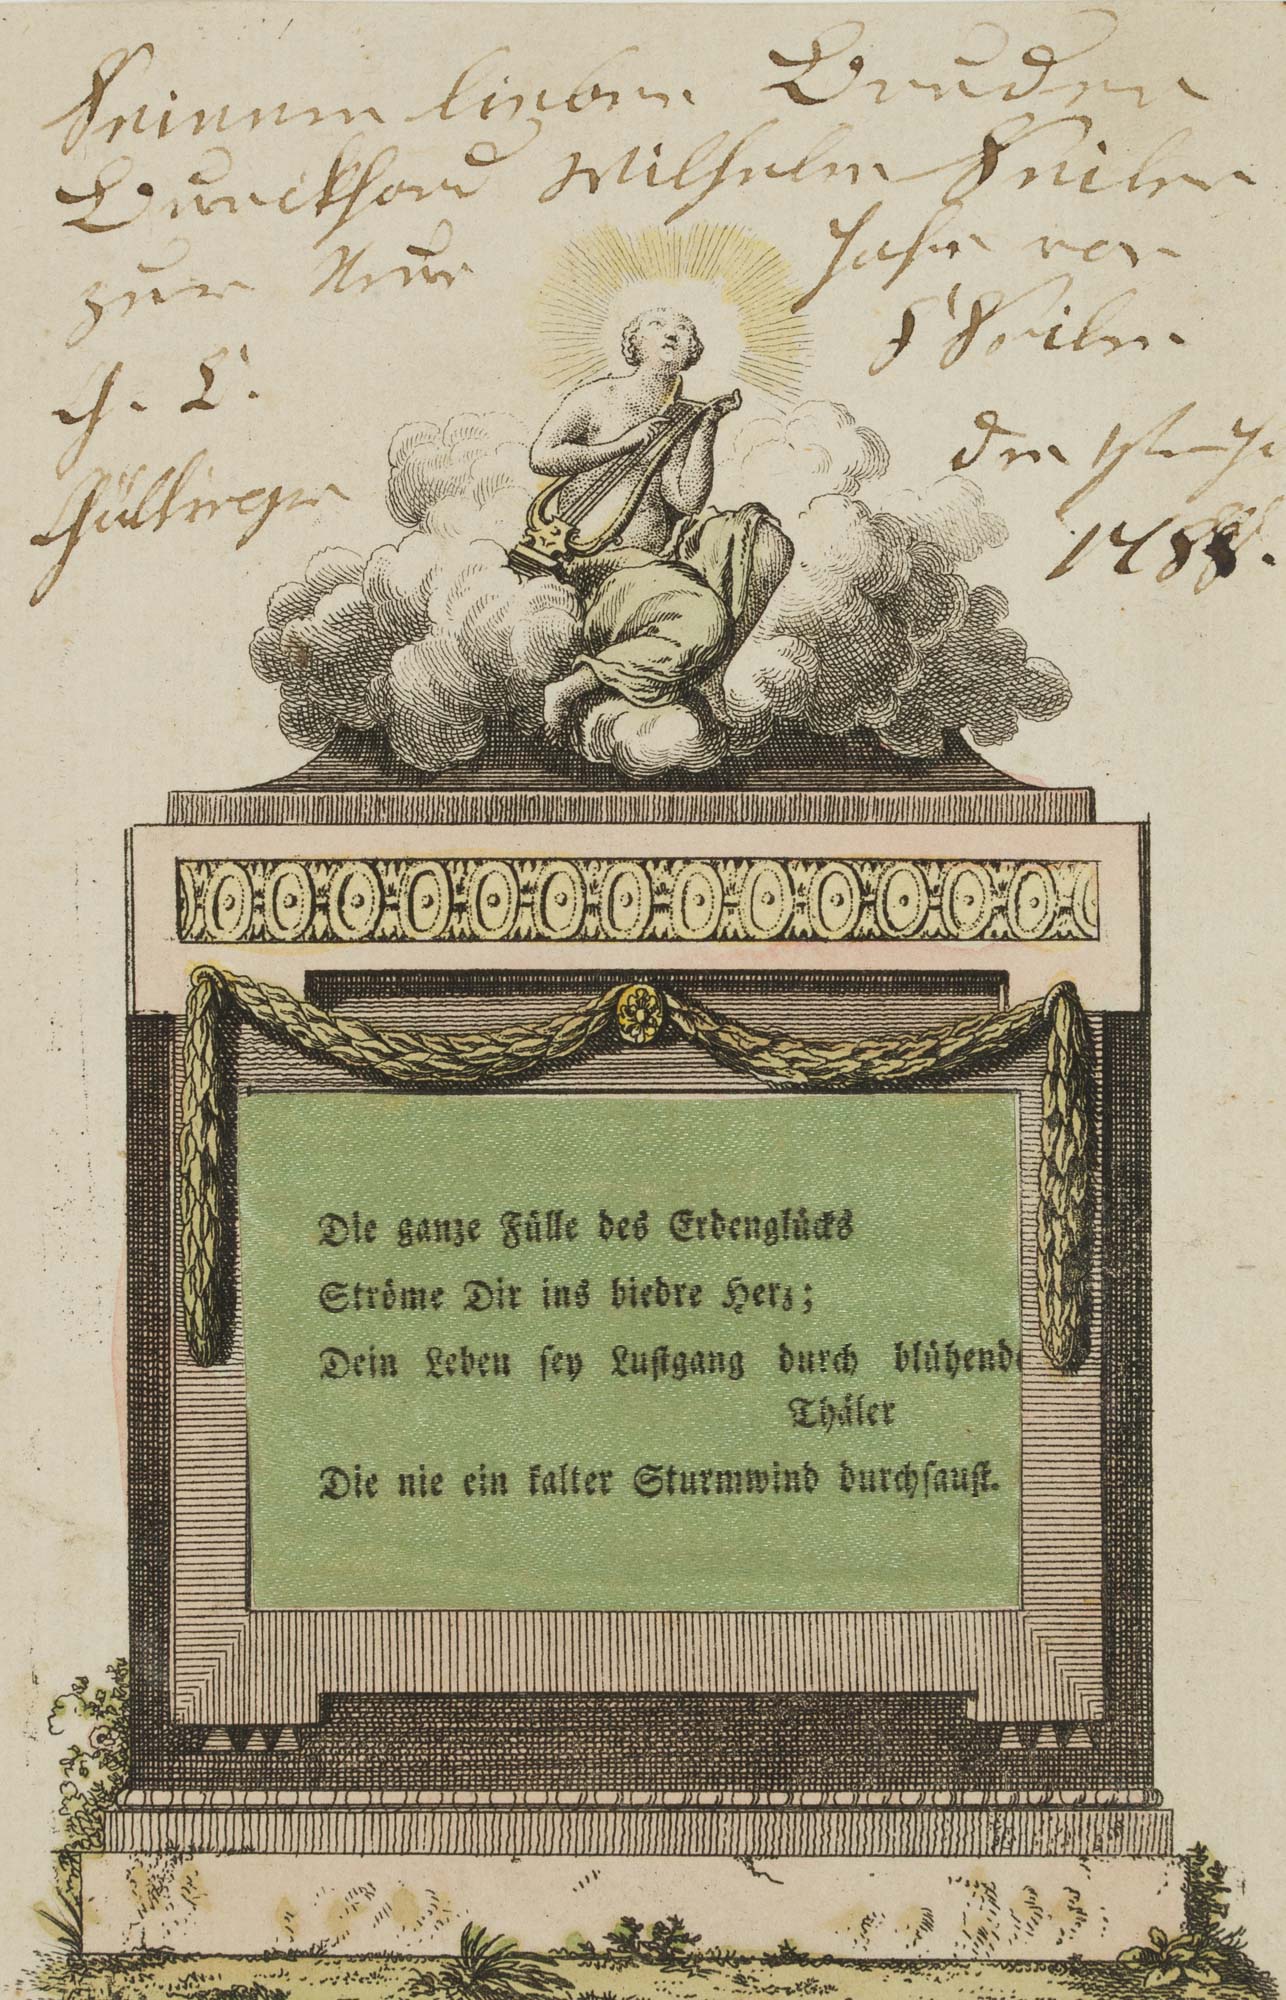 Seinem lieben Bruder
Burckhard Wilhelm Seiler
zum Neuen Jahr von
G. L. Seiler
den
1788.
Die ganze Fülle des Erdenglücks
Ströme Dir ins biedre Herz;
Dein Leben sey Lustgang durch blühende
Thäler
Die nie ein kalter Sturmwind durchsaust.